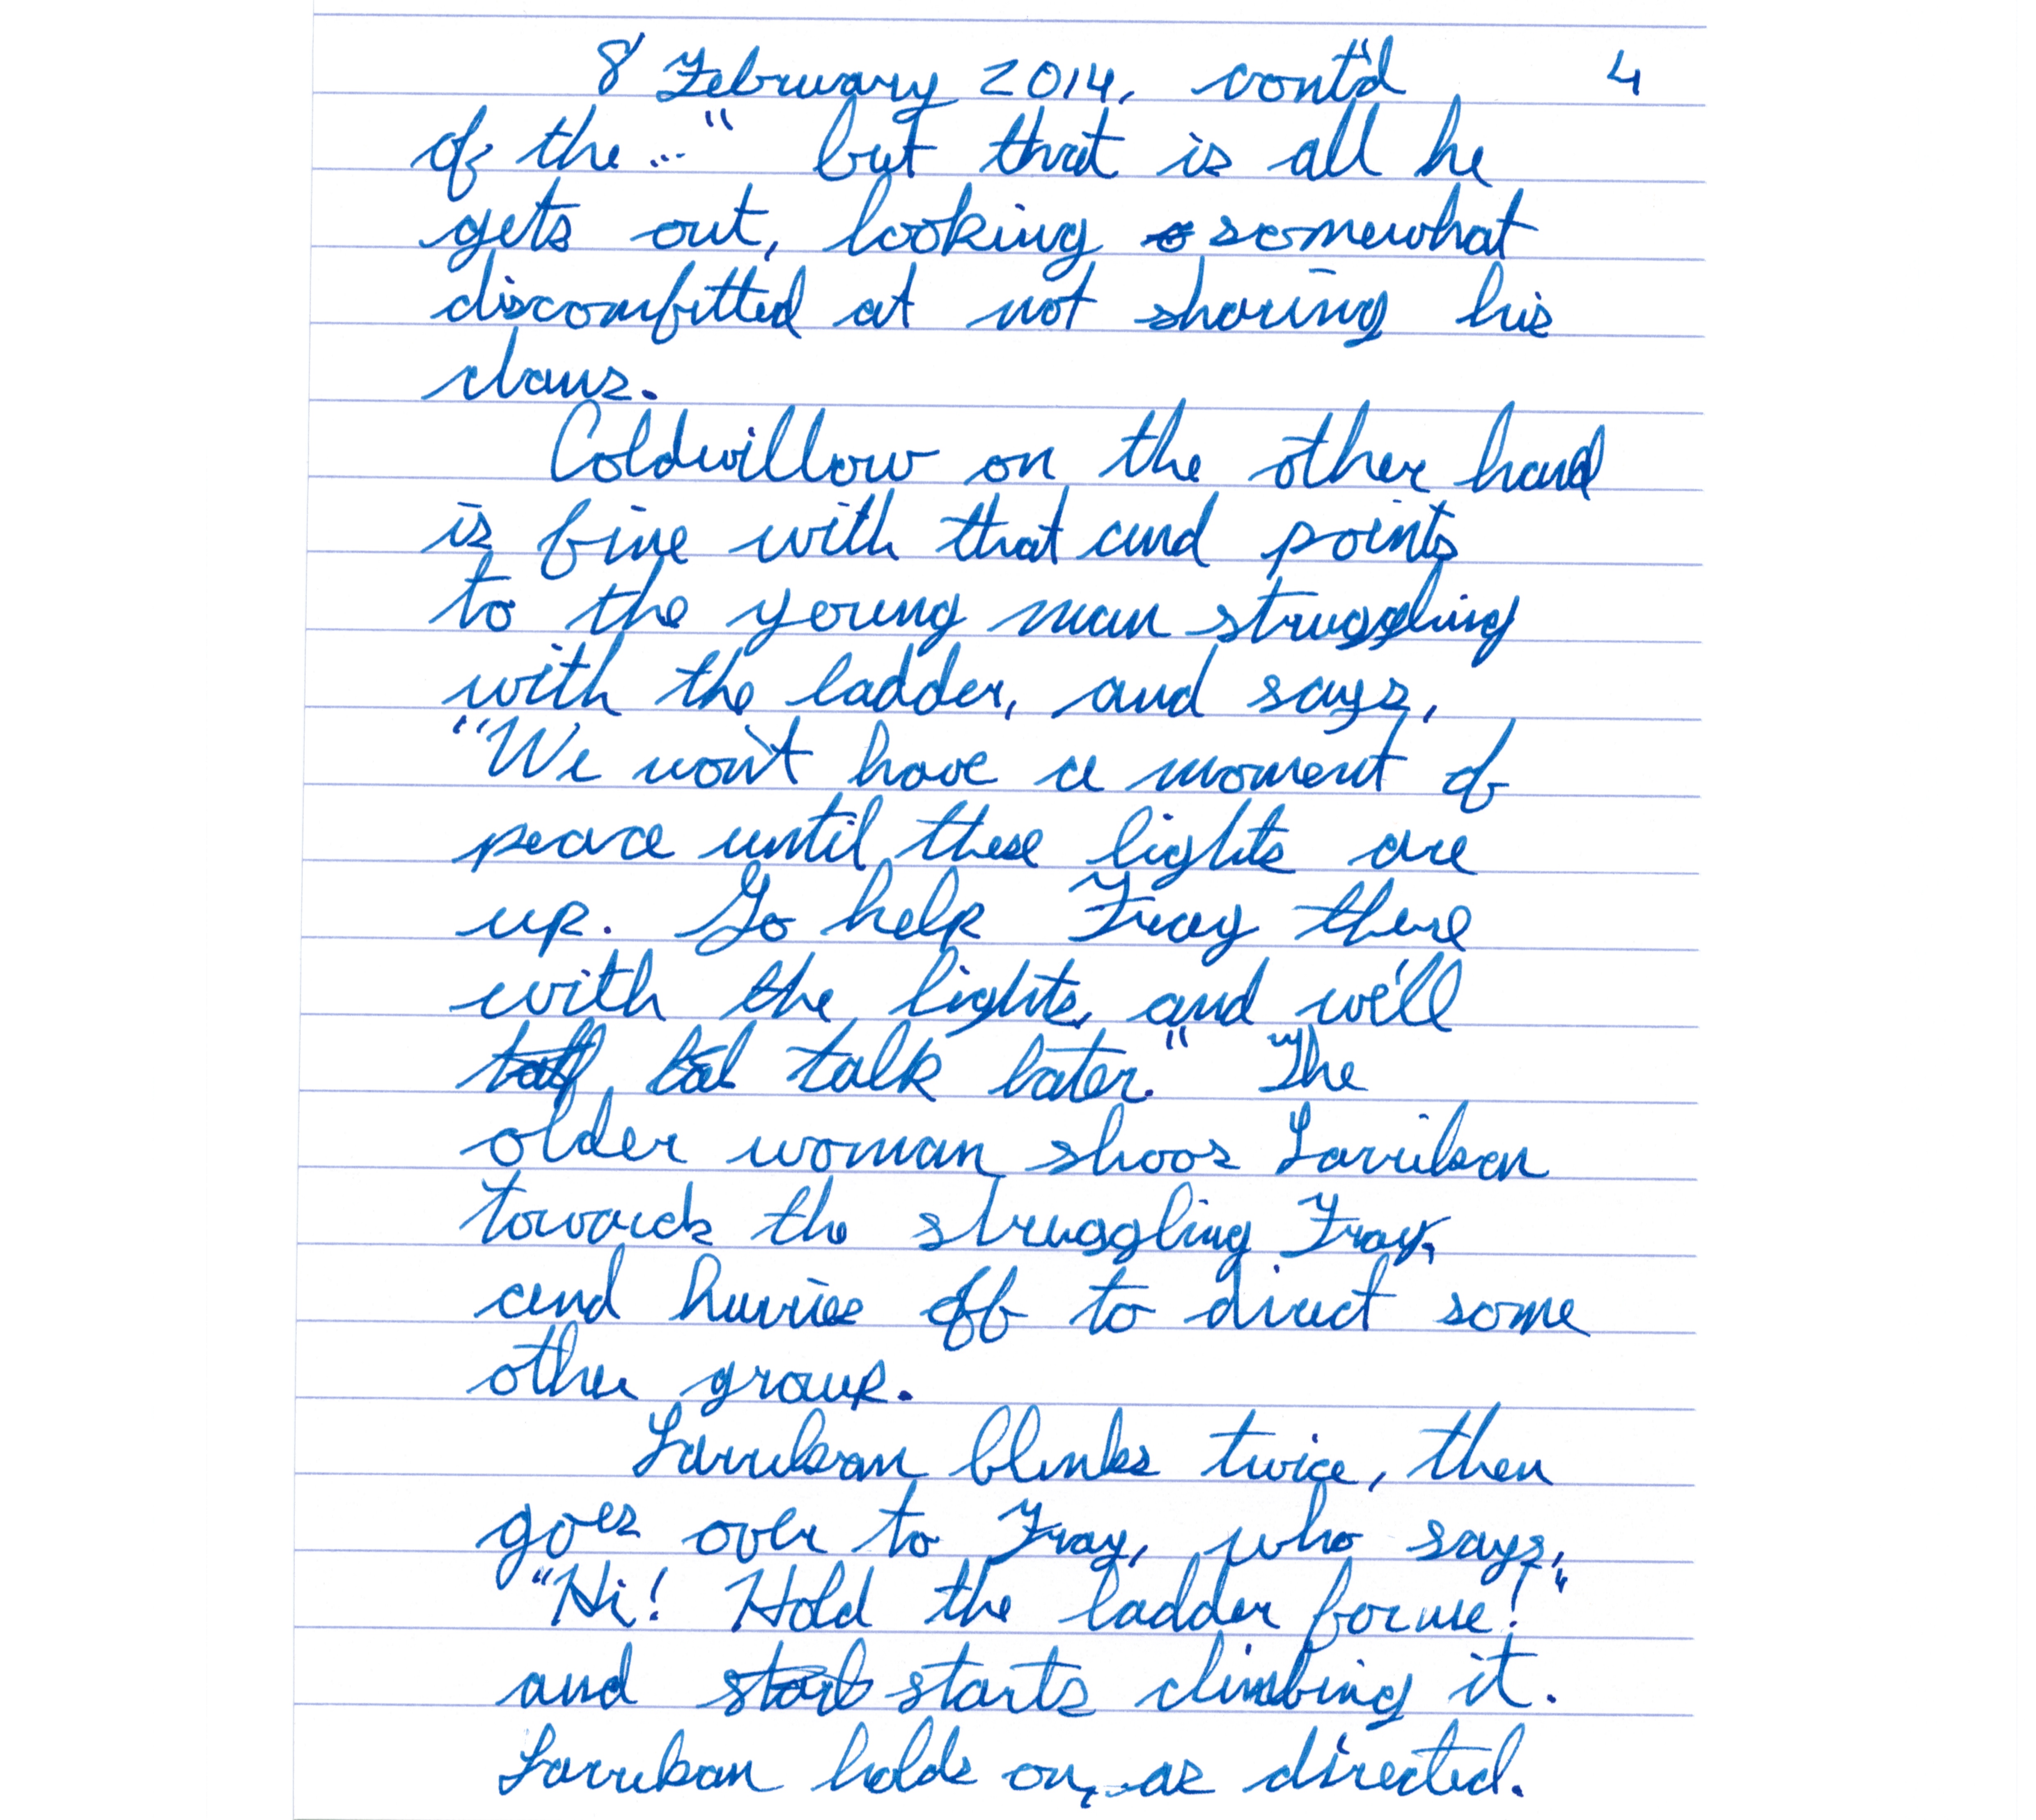 8 February 2014, cont'd 4
of the..." but that is all he
gets out, looking somewhat
discomfitted at not sharing his
claws.
Coldwillow on the other hand
is fine with that and points
to the young man struggling
with the ladder, and says,
"We won't have a moment of
peace until these lights are
up. Go help Fray there
with the lights, and we'll
talk later." The
older woman shoos Larrikan
towards the struggling Fray,
and hurries off to direct some
other group.
Larrikan blinks twice, then
goes over to Fray, who says,
"Hi! Hold the ladder for me!"
and starts climbing it.
Larrikan holds on, as directed.